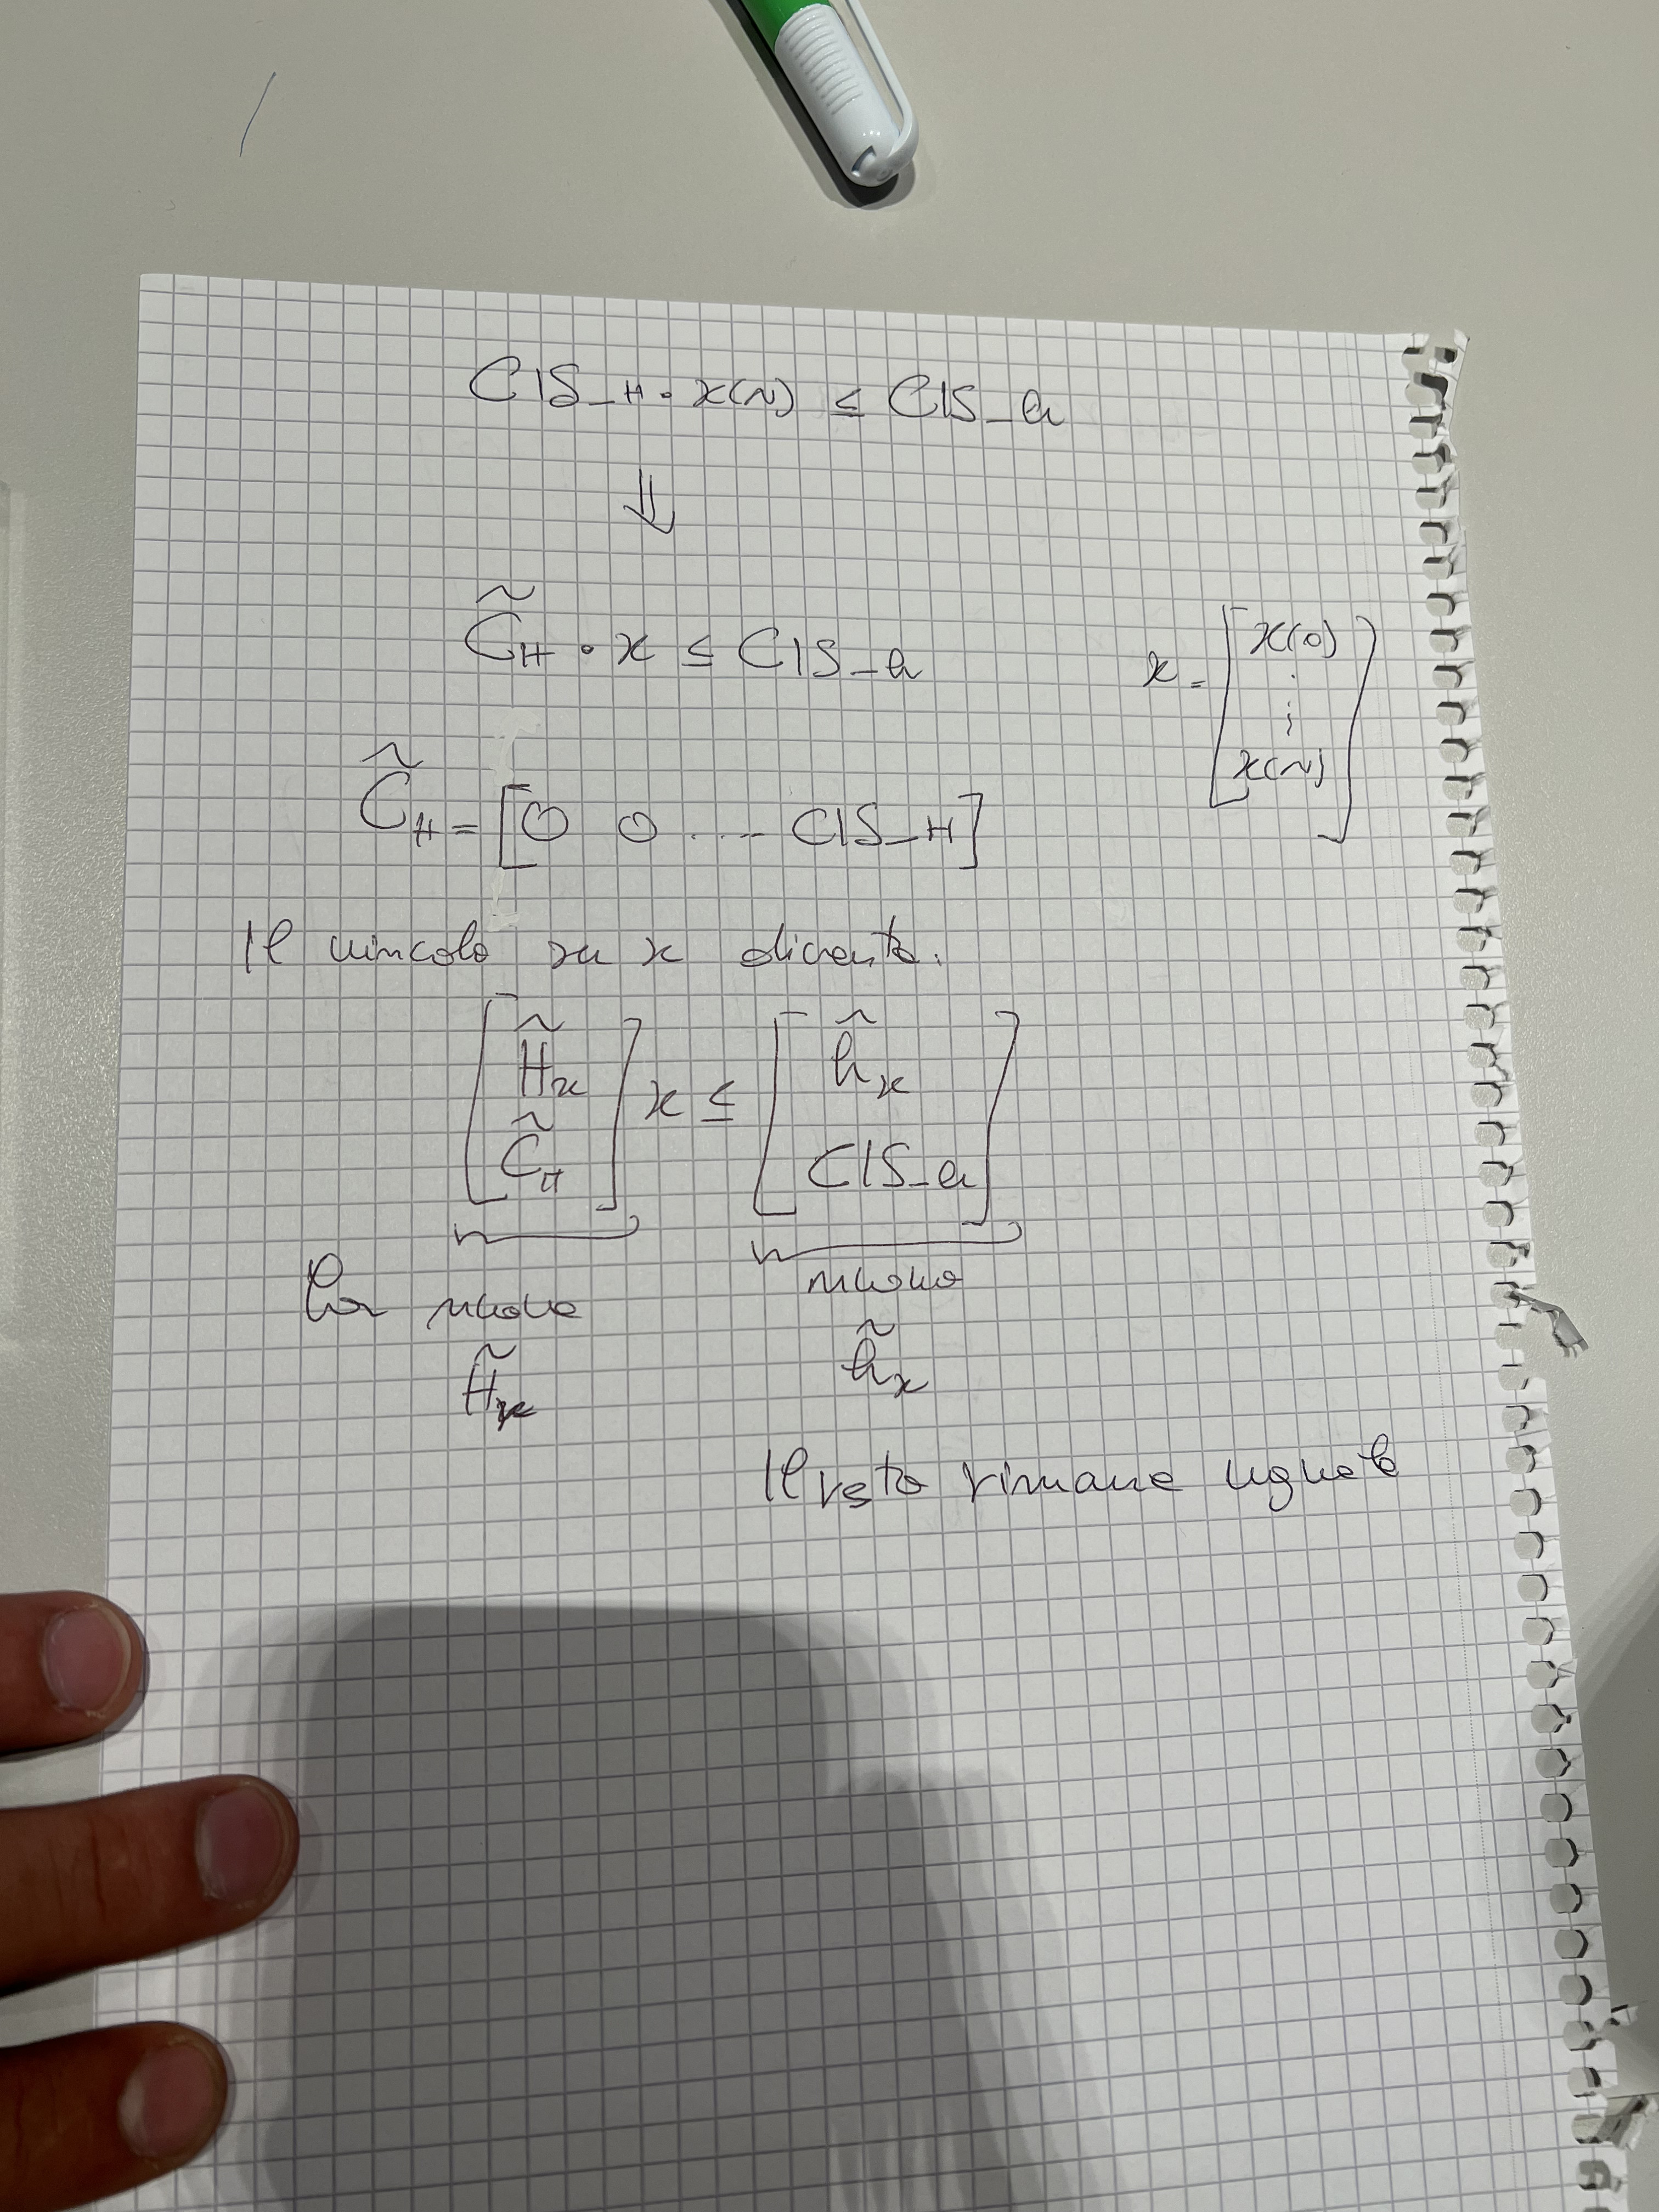 CIS_H · x(N) ≤ CIS_h
⇓
C̃_H · x ≤ CIS_h
x = [x(0) ⋮ x(N)]
C̃_H = [0 0 .... CIS_H]
Il vincolo su x diventa:
[H̃_x C̃_H] x ≤ [h̃_x CIS_h]
la nuova H̃_x
nuovo h̃_x
Il resto rimane uguale